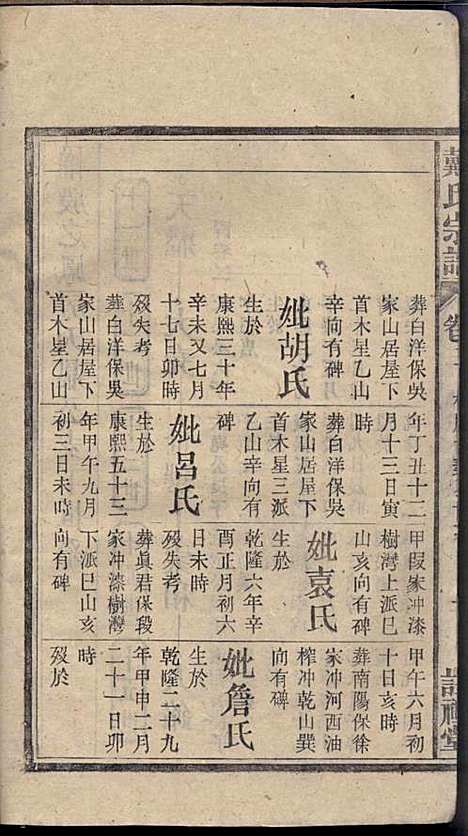 戴氏宗譜
卷
堂
葬白洋保吳
家山居屋下
首木星乙山
辛向有碑
妣胡氏
生於
康熙三十年
辛未又七月
十七日卯時
歿失考
葬白洋保吳
家山居屋下
首木星乙山
年丁丑十二
月十三日寅
時
葬白洋保吳
家山居屋下
首木星三派
乙山辛向有
碑
妣呂氏
生於
康熙五十三
年甲午九月
初三日未時
甲叚家冲漆
樹灣上派巳
山亥向有碑
妣袁氏
生於
乾隆六年辛
酉正月初六
日未時
歿失考
葬眞君保段
家冲漆樹灣
下派巳山亥
向有碑
甲午六月初
十日亥時
葬南陽保徐
家冲河西油
榨冲乾山巽
向有碑
妣詹氏
生於
乾隆二十九
年甲申二月
二十一日卯
時
歿於